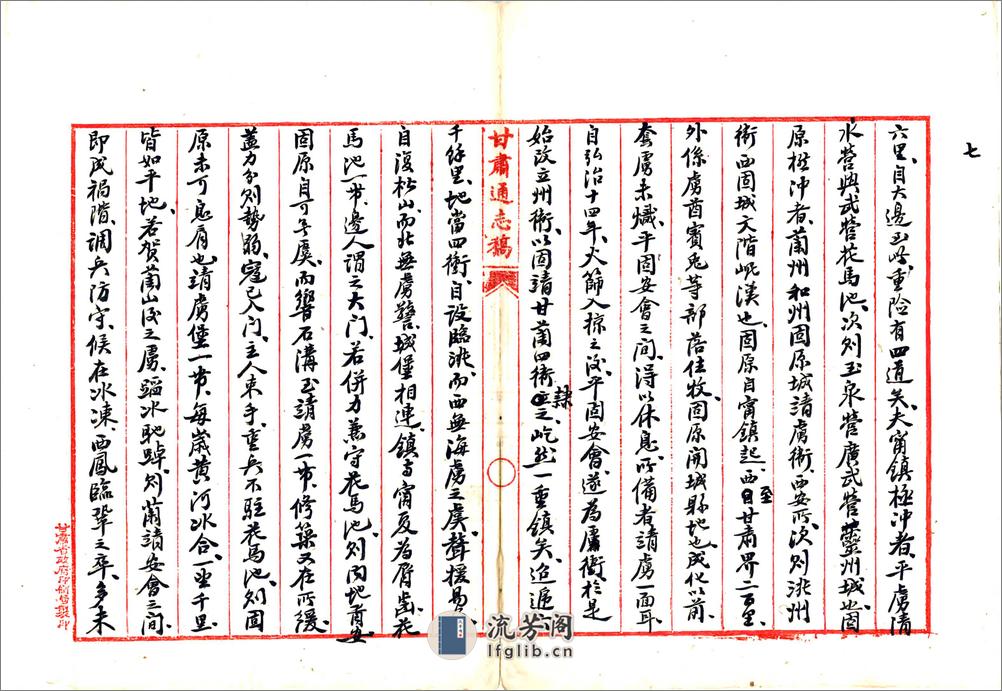 七
六里、自大邊至此重险有四道矣、夫甯鎮極冲者、平虜清
水營興武營花馬池、次则玉泉營廣武營靈州城、当固
原極冲者、蘭州和州固原城靖虜衛、西安所、次则洮州
衛西固城文階岷漢也、固原自甯鎮起、西至甘肅界二百里、
外係虜酋賓兎等部落住牧、固原開城縣地也、成化以前、
套虜未熾、平固安會之间、得以休息、所備者請虜一面耳、
自弘治十四年、火篩入掠之後、平固安會、遂為虜衝、於是
始改立州衛、以固請甘蘭四衛隸之、屹然一重鎮矣、迨遞
甘肅通志稿
千餘里、地當四衝、自設臨洮、而西無海虜之虞、聲援易
自復松山而北無虜警、城堡相連、鎮与甯夏為唇齒、花
馬池一帶、邊人謂之大门、若併力共守花馬池、则内地省安
固原自可無虞、而響石溝至請虜一帶、修築又在所緩、
蓋力分则勢弱、寇已入门、主人束手、重兵不駐花馬池、则固
原未可息肩也、請虜堡一帶、每歲黄河冰合、一望千里
皆如平地、若賀蘭山後之虜、踏冰馳踔、则蘭請安會之间
即成禍階、調兵防守、候在冰凍、西鳳臨鞏之卒、多未
甘肅省政府印刷局製印
流芳阁
lfglib.cn